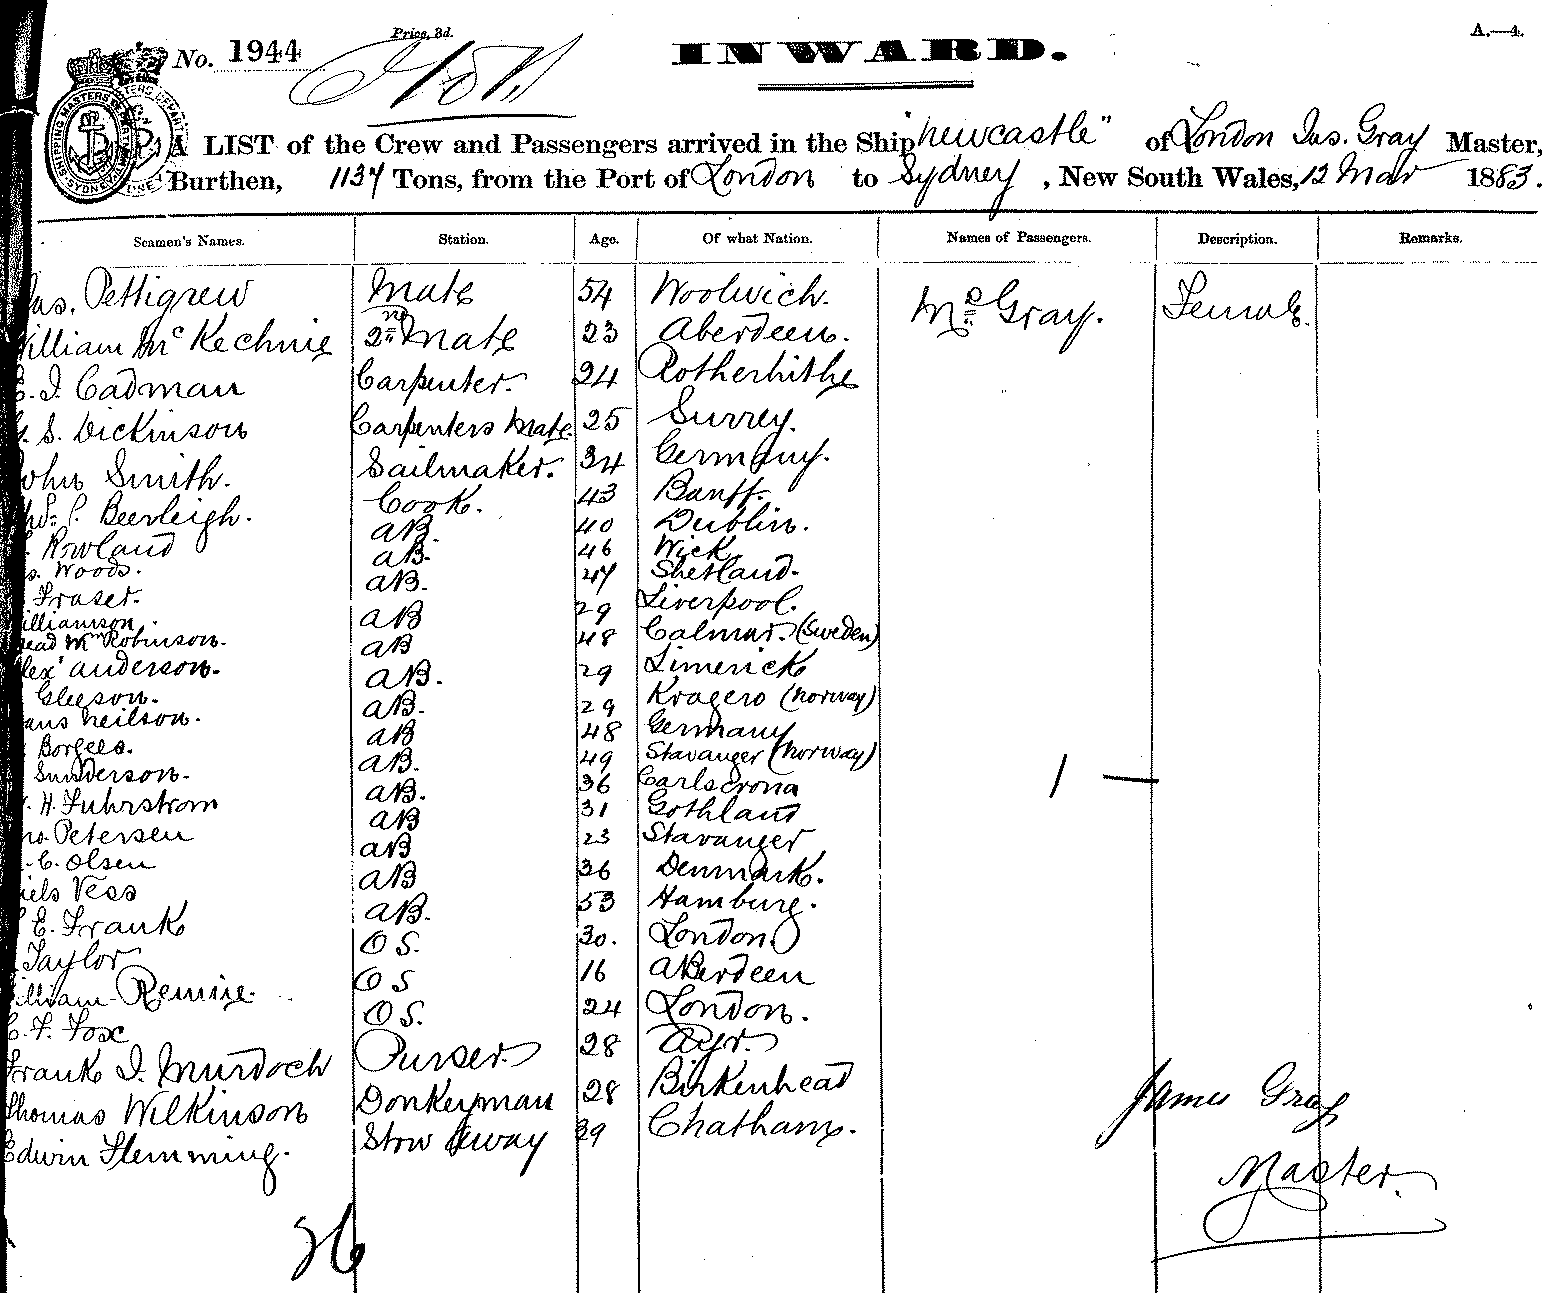 No. 1944 Price, 3d. INWARD. A.—4.
A LIST of the Crew and Passengers arrived in the Ship "Newcastle" of London Jas. Gray Master,
Burthen, 1137 Tons, from the Port of London to Sydney, New South Wales, 12 Mar 1883.
Seamen's Names. Station. Age. Of what Nation. Names of Passengers. Description. Remarks.
Jas. Pettigrew Mate 54 Woolwich. Mrs Gray. Female
William McKechnie 2nd Mate 23 Aberdeen.
Cadman Carpenter. 24 Rotherhithe
S. Dickinson Carpenters Mate. 25 Surrey.
John Smith. Sailmaker. 34 Germany.
Beerleigh. Cook. 43 Banff.
Rowland AB. 40 Dublin.
Woods. AB. 46 Wick
Fraser. AB. 47 Shetland.
Williamson. AB 29 Liverpool.
Wm Robinson. AB 48 Calmar. (Sweden)
Alexr Anderson. AB. 29 Limerick
Gleeson. AB. 29 Kragero (Norway)
Hans Neilson. AB 48 Germany
Borgees. AB. 49 Stavanger (Norway)
Sunderson. AB. 36 Carlscrona
H. Fuhrstrom AB 31 Gothland
Petersen AB 23 Stavanger
C. Olsen AB 36 Denmark.
Niels Vess AB. 53 Hamburg.
E. Frank OS. 30. London
Taylor OS 16 Aberdeen
William Rennie. OS. 24 London.
C. F. Fox Purser. 28 Ayr.
Frank I. Murdoch Donkeyman 28 Birkenhead
Thomas Wilkinson Stow away 39 Chatham.
Edwin Flemming.
1 —
James Gray
Master.
26